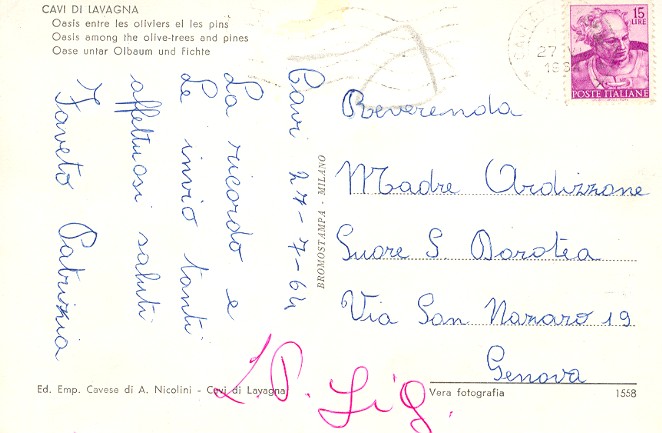 CAVI DI LAVAGNA
Oasis entre les oliviers el les pins
Oasis among the olive-trees and pines
Oase untar Olbaum und Fichte
15
LIRE
POSTE ITALIANE
Cavi 27-7-64
La ricordo e
Le invio tanti
affettuosi saluti
Faveto Patrizia
BROMOSTAMPA - MILANO
Reverenda
Madre Ardizzone
Suore S Dorotea
Via San Nazaro 19
Genova
L.P. Lig.
Ed. Emp. Cavese di A. Nicolini - Cavi di Lavagna
Vera fotografia
1558